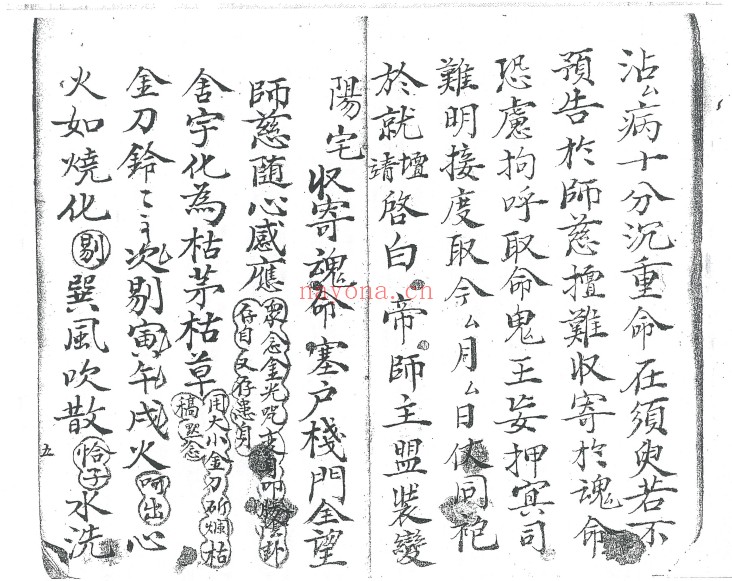 沾厶病十分沉重命在須臾若不
預告於師慈擅難収寄於魂命
恐慮拘呼取命鬼王妄押冥司
難明接度取今厶月厶日伏同祀
於就壇請啓白帝師主盟裝變
陽宅収寄魂命塞户棧門全望
師慈随心感應要念金光咒存自反存患身
舍字化為枯茅枯草用大小金刀斫爍枯稿黙念
金刀鈴〻主次剔寅午戌火呵出心
火如燒化剔巽風吹散恰子水洗
五
nayona.cn